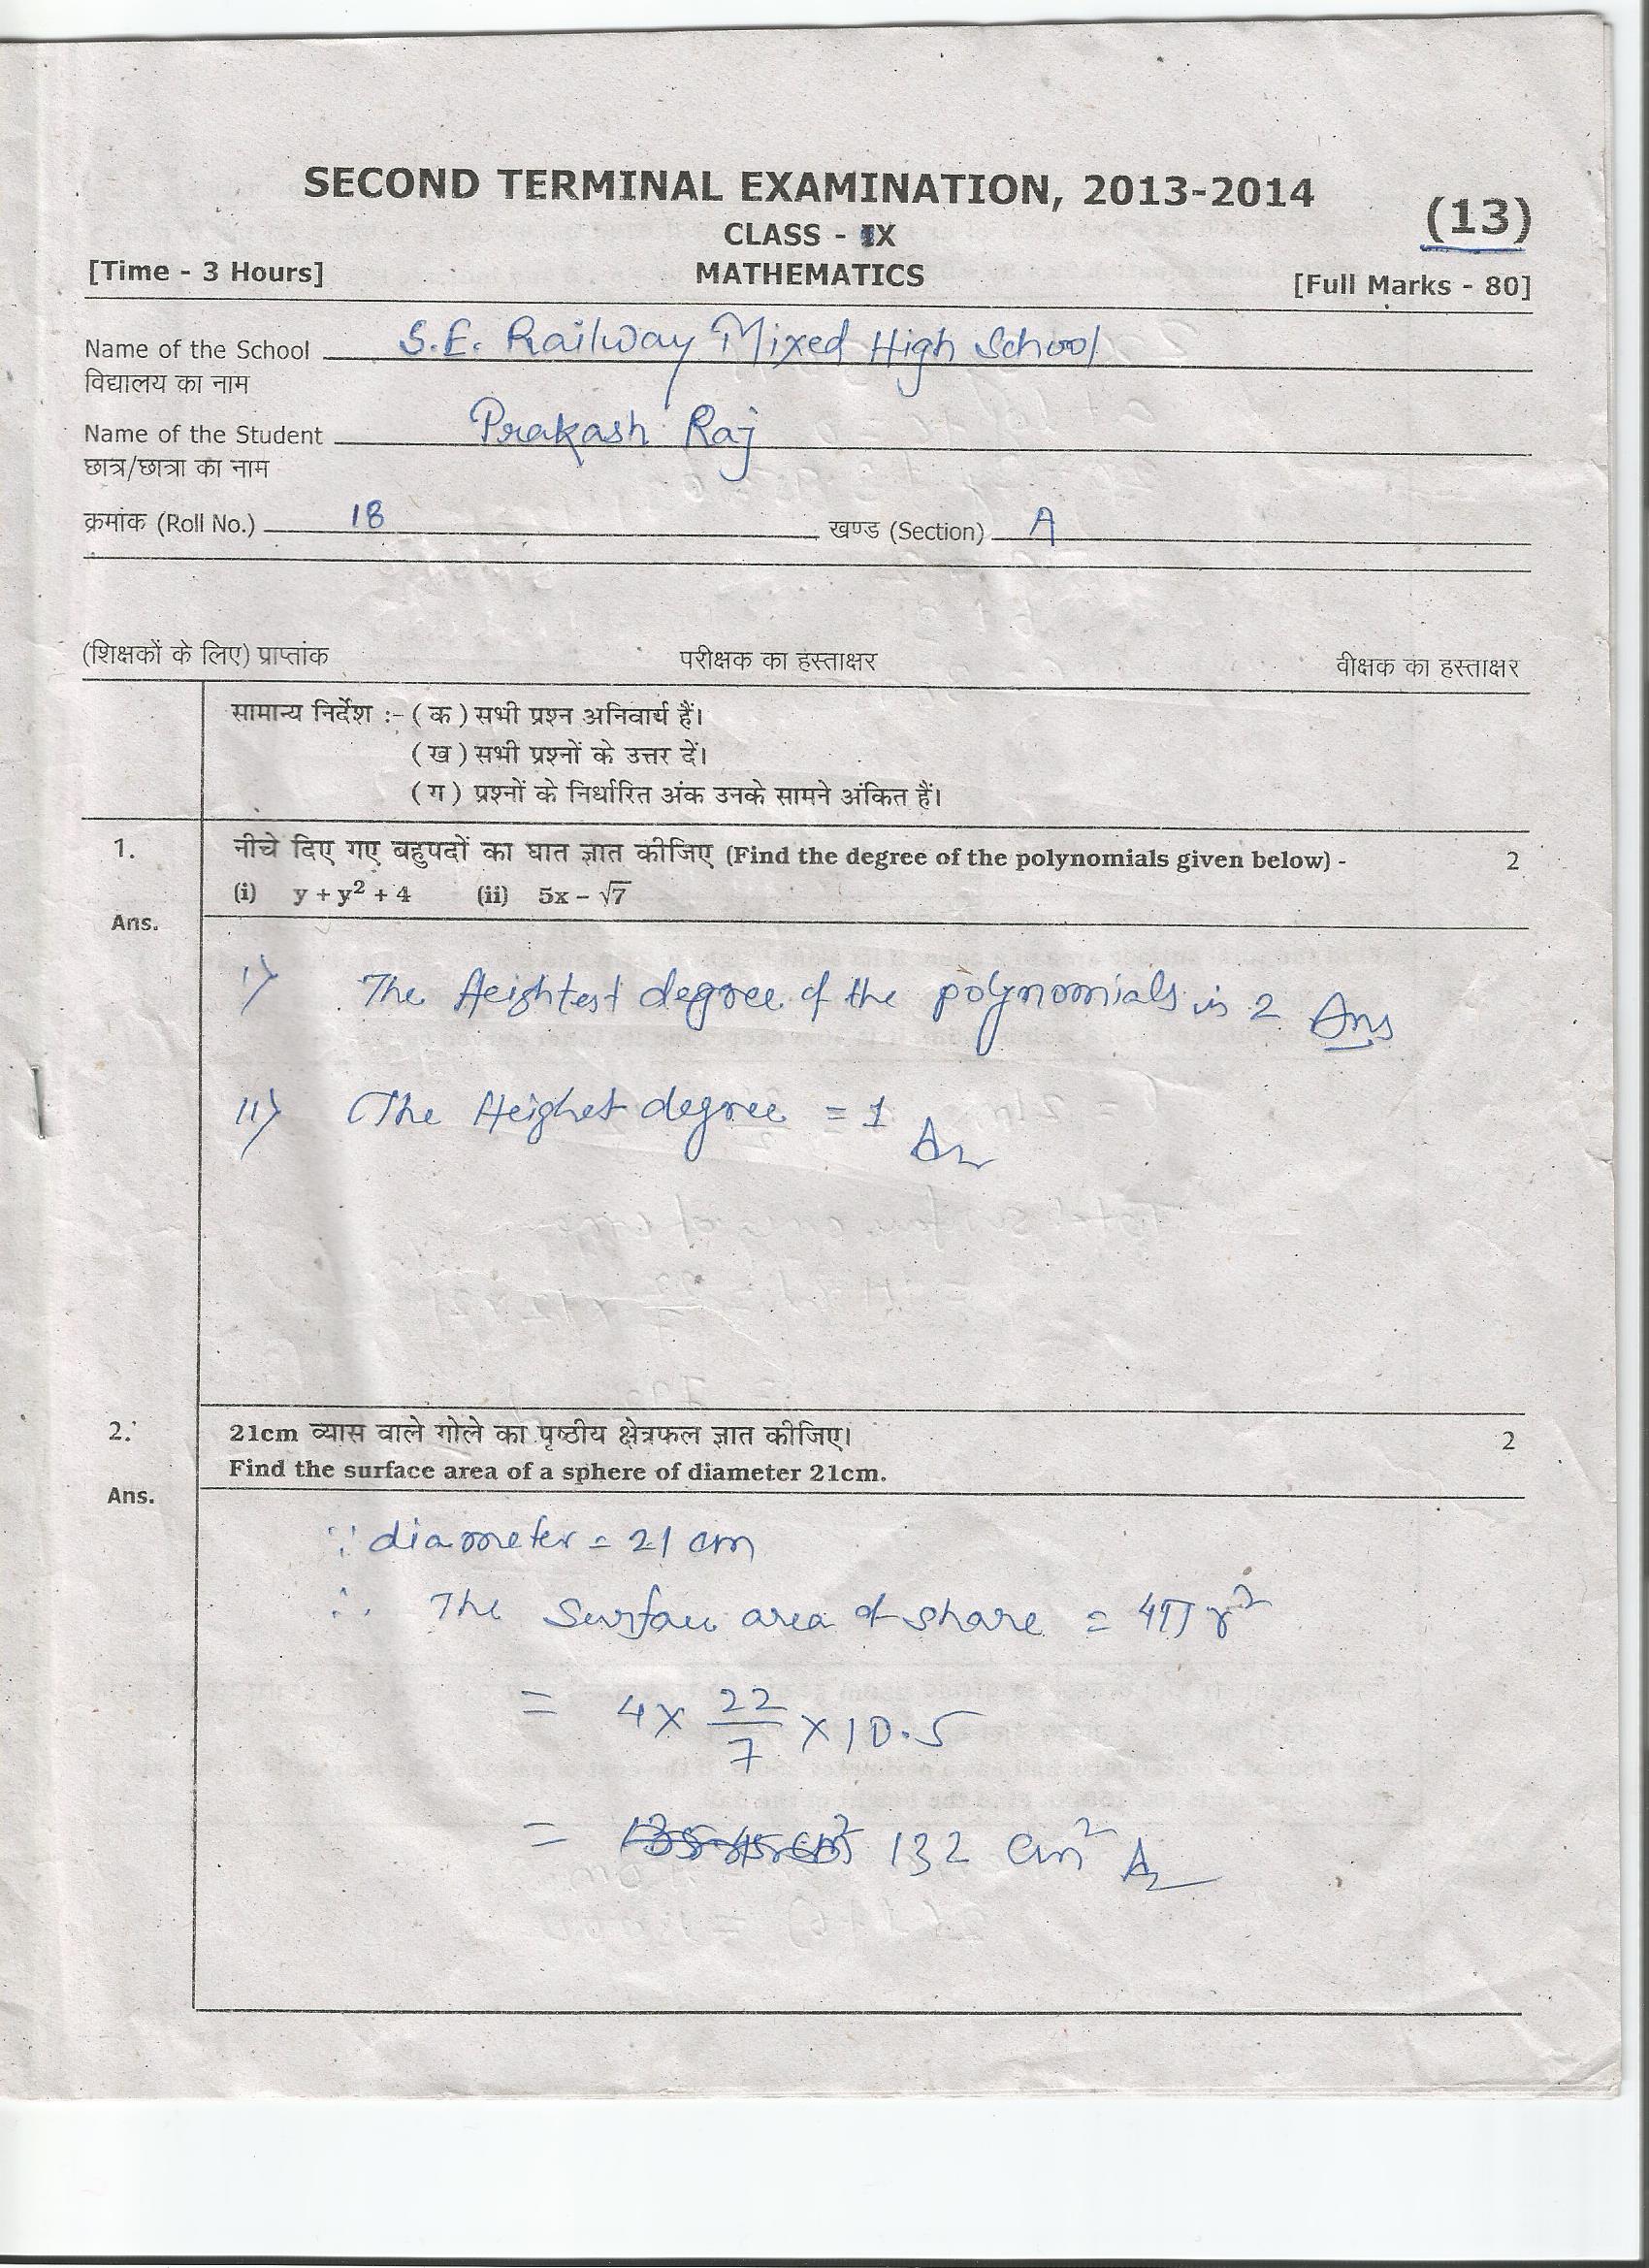 SECOND TERMINAL EXAMINATION, 2013-2014
(13)
CLASS - IX
[Time - 3 Hours] MATHEMATICS [Full Marks - 80]
Name of the School S.E. Railway Mixed High School
विद्यालय का नाम
Name of the Student Prakash Raj
छात्र/छात्रा का नाम
क्रमांक (Roll No.) 18 खण्ड (Section) A
(शिक्षकों के लिए) प्राप्तांक परीक्षक का हस्ताक्षर वीक्षक का हस्ताक्षर
सामान्य निर्देश :- (क) सभी प्रश्न अनिवार्य हैं।
(ख) सभी प्रश्नों के उत्तर दें।
(ग) प्रश्नों के निर्धारित अंक उनके सामने अंकित हैं।
1. नीचे दिए गए बहुपदों का घात ज्ञात कीजिए (Find the degree of the polynomials given below) - 2
(i) y + y² + 4 (ii) 5x – √7
Ans.
i) The Heightest degree of the polynomials is 2 Ans
ii) The Heighest degree = 1 An
2. 21cm व्यास वाले गोले का पृष्ठीय क्षेत्रफल ज्ञात कीजिए। 2
Find the surface area of a sphere of diameter 21cm.
Ans.
∵ diameter = 21 cm
∴ The Surface area of share = 4πr²
= 4 × 22/7 × 10.5
= 132 cm² A